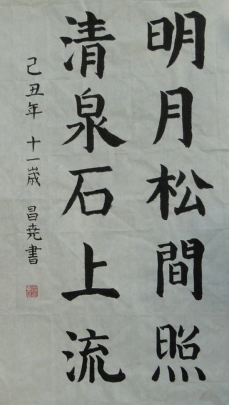 明月松間照
清泉石上流
己丑年 十一歲 昌堯書